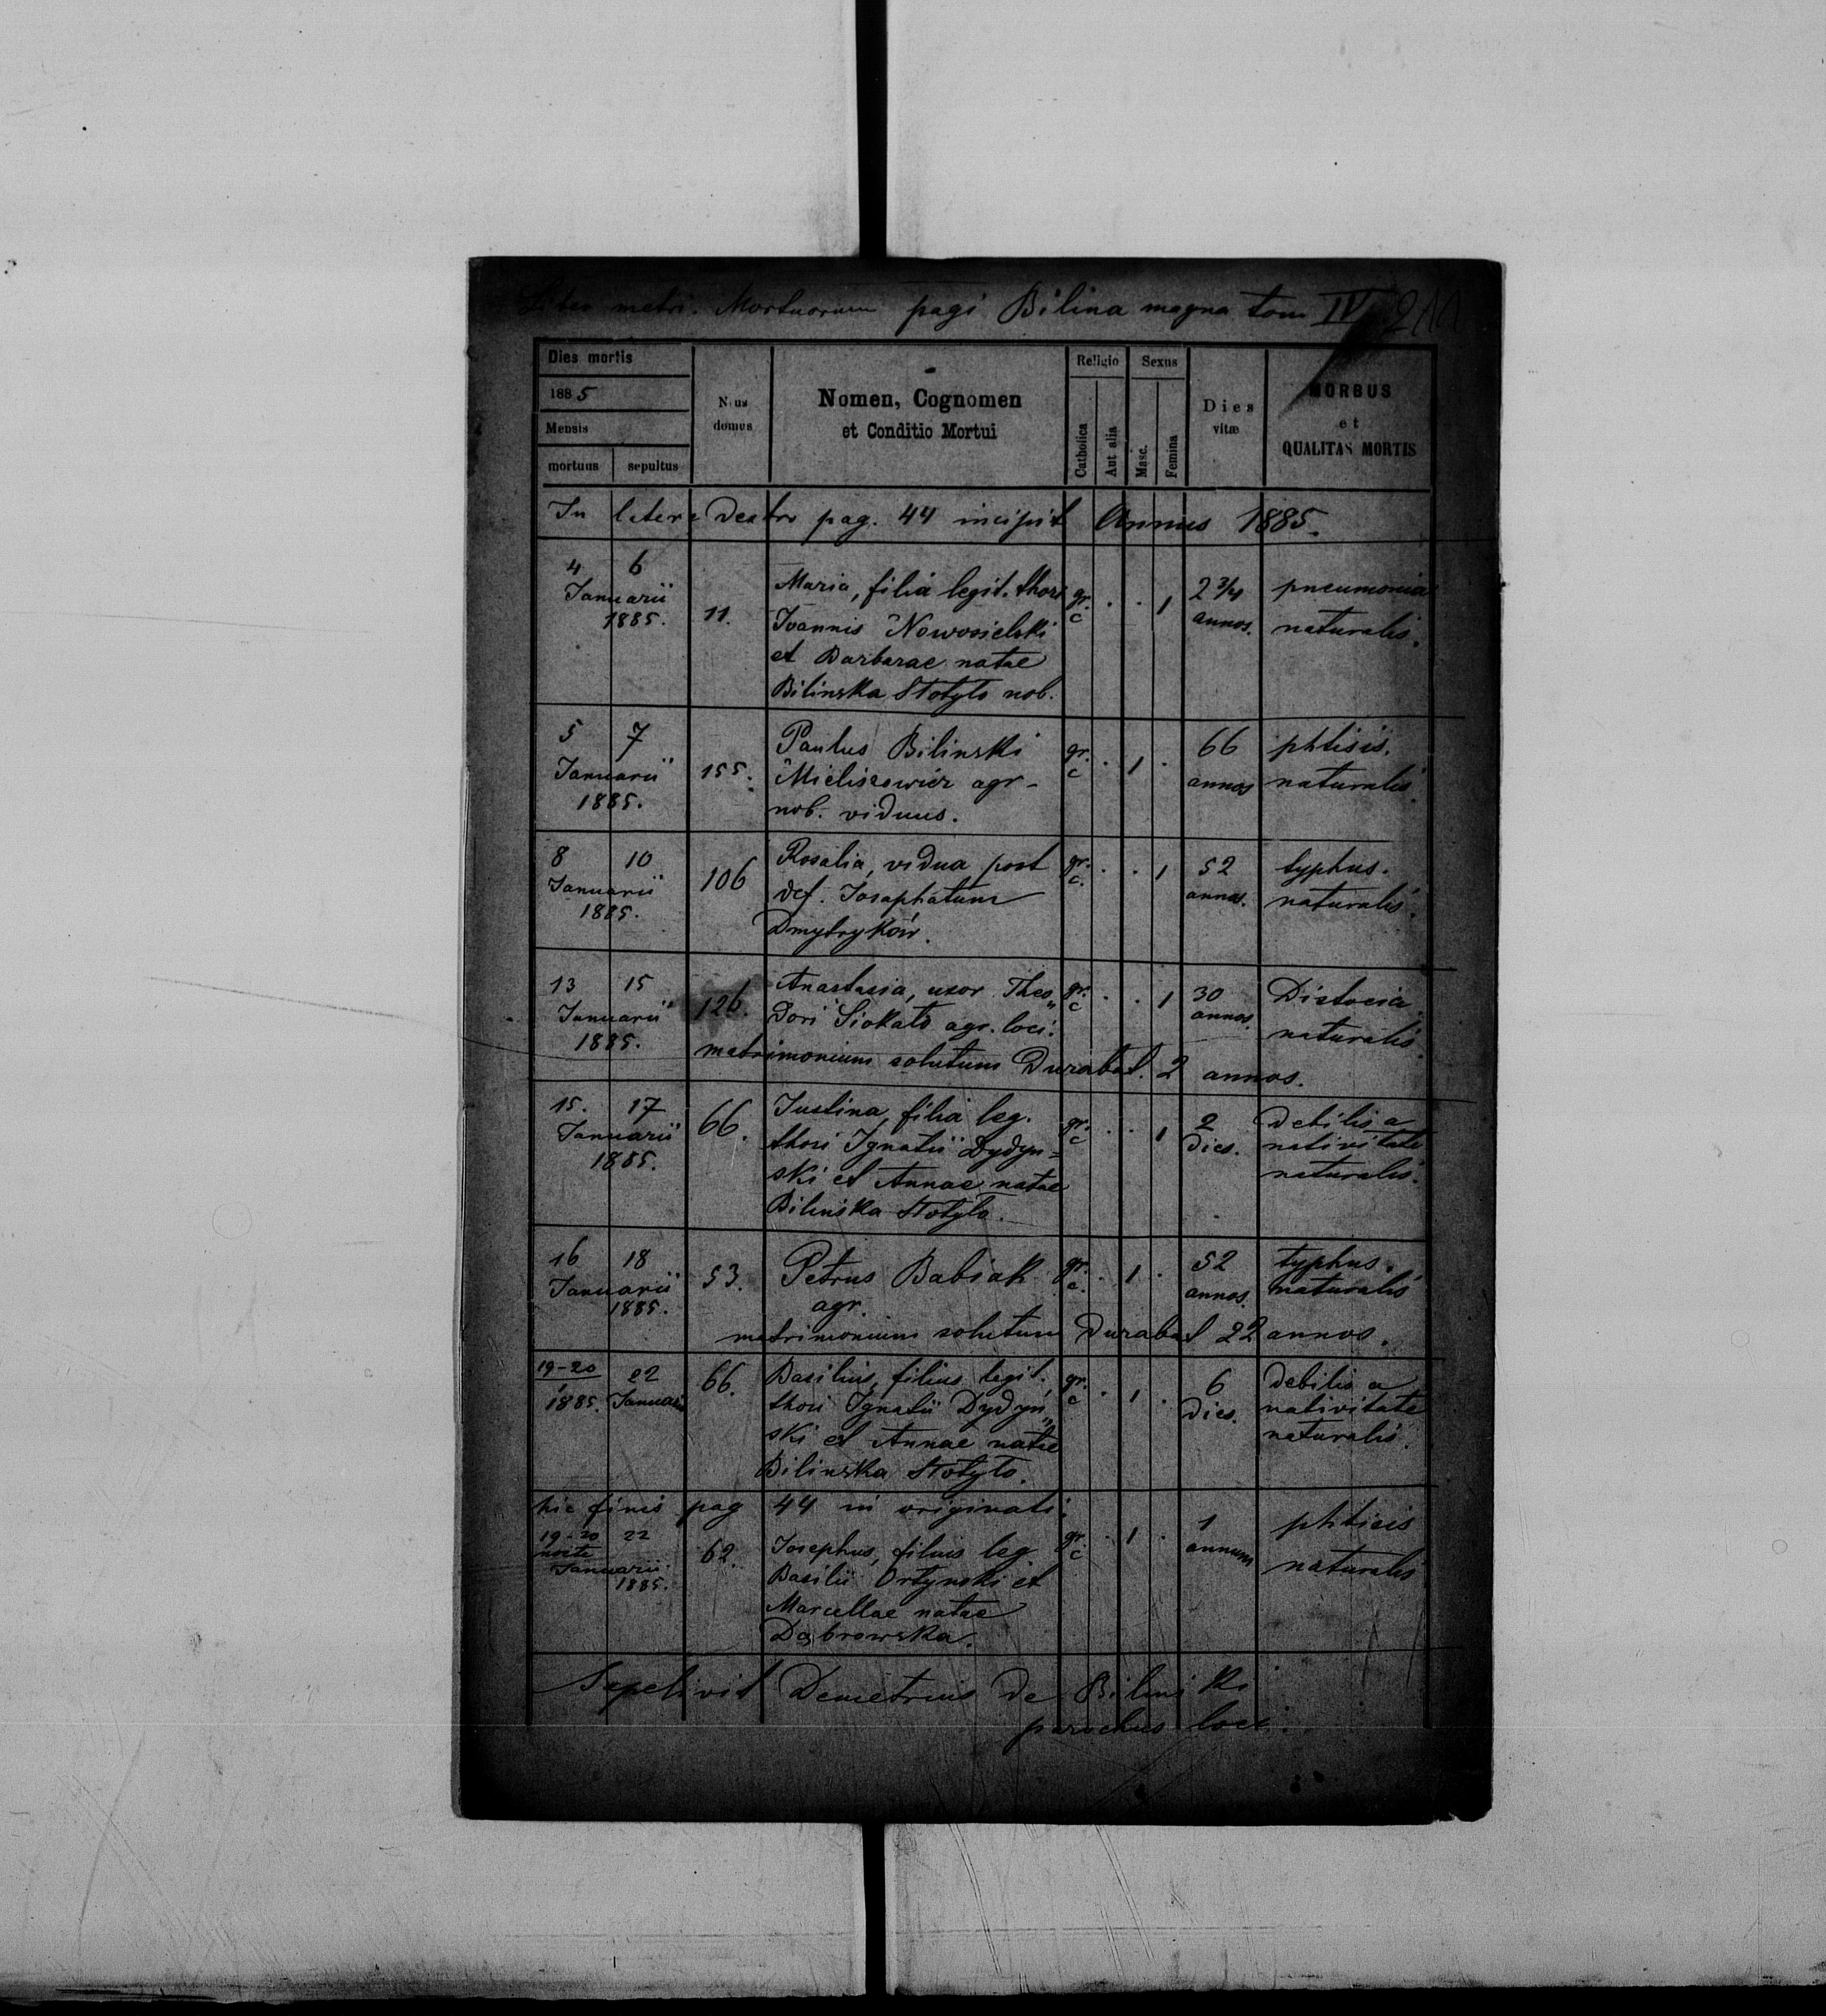 Liber metri. Mortuorum pagi Bilina magna tom IV 211
Dies mortis
1885
Mensis
mortuus sepultus
N us domus
Nomen, Cognomen
et Conditio Mortui
Religio
Catholica
Aut alia
Sexus
Masc.
Femina
Dies
vitæ
MORBUS
et
QUALITAS MORTIS
In latere dextro pag. 44 incipit Annus 1885.
4 6
Januarii
1885.
11.
Maria, filia legit. thori
Joannis Nowosielski
et Barbarae natae
Bilinska Stotyto nob.
gr.
c
. . 1
2 3/4
annos.
pneumonia
naturalis.
5 7
Januarii
1885.
155.
Paulus Bilinski
Mieliszowicz agr-
nob. viduus.
gr.
c
. 1 .
66
annos
phtisis.
naturalis.
8 10
Januarii
1885.
106
Rosalia, vidua post
def. Josaphatum
Dmytryków.
gr.
c.
. . 1
52
annos.
typhus.
naturalis.
13 15
Januarii
1885.
126.
Anastasia, uxor Theo„
dori Siokato agr. loci.
matrimonium solutum Durabat. 2 annos.
gr.
c
. . 1
30
annos.
Distocia.
naturalis.
15. 17
Januarii
1885.
66.
Justina, filia leg.
thori Ignatii Dydyn=
ski et Annae natae
Bilinska Stotyto.
gr.
c
. . 1
2
dies.
debilis a
nativitate
naturalis.
16 18
Januarii
1885.
53.
Petrus Babiak
agr.
matrimonium solutum Durabat 22 annos.
gr.
c.
. 1 .
52
annos.
typhus.
naturalis
19-20
1885.
22
Januarii
66.
Basilius, filius legit.
thori Ignatii Dydyń„
ski et Annae natae
Bilinska Stotyto.
gr.
c
. 1 .
6
dies.
debilis a
nativitate
naturalis.
hic finis pag 44 in originali.
19-20 22
nocte
Januarii
1885.
62.
Josephus, filius leg
Basilii Ortynski et
Marcellae natae
Dąbrowska.
gr.
c
. 1 .
1
annum
phtisis
naturalis
Sepelivit Demetrius de Bilinski
parochus loci.